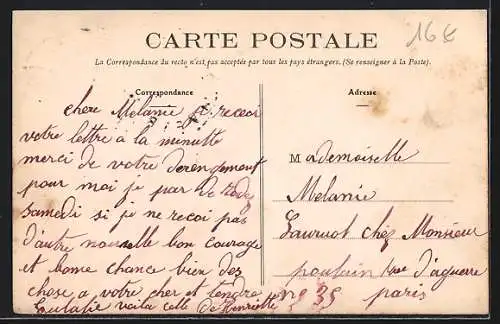 16€
CARTE POSTALE
La Correspondance du recto n'est pas acceptée par tous les pays étrangers. (Se renseigner à la Poste).
Correspondance
chere Melanie je receoi
votre lettre a la minutte
merci de votre derengement
pour moi je par de
samedi si je ne recoi pas
d'autre nouvelle bon courage
et bonne chance bien des
chose a votre cher et tendre
voila celle de Henriette
Adresse
Mademoiselle
Melanie
chez Monsieur
poulain rue d'aguerre
no 35 paris